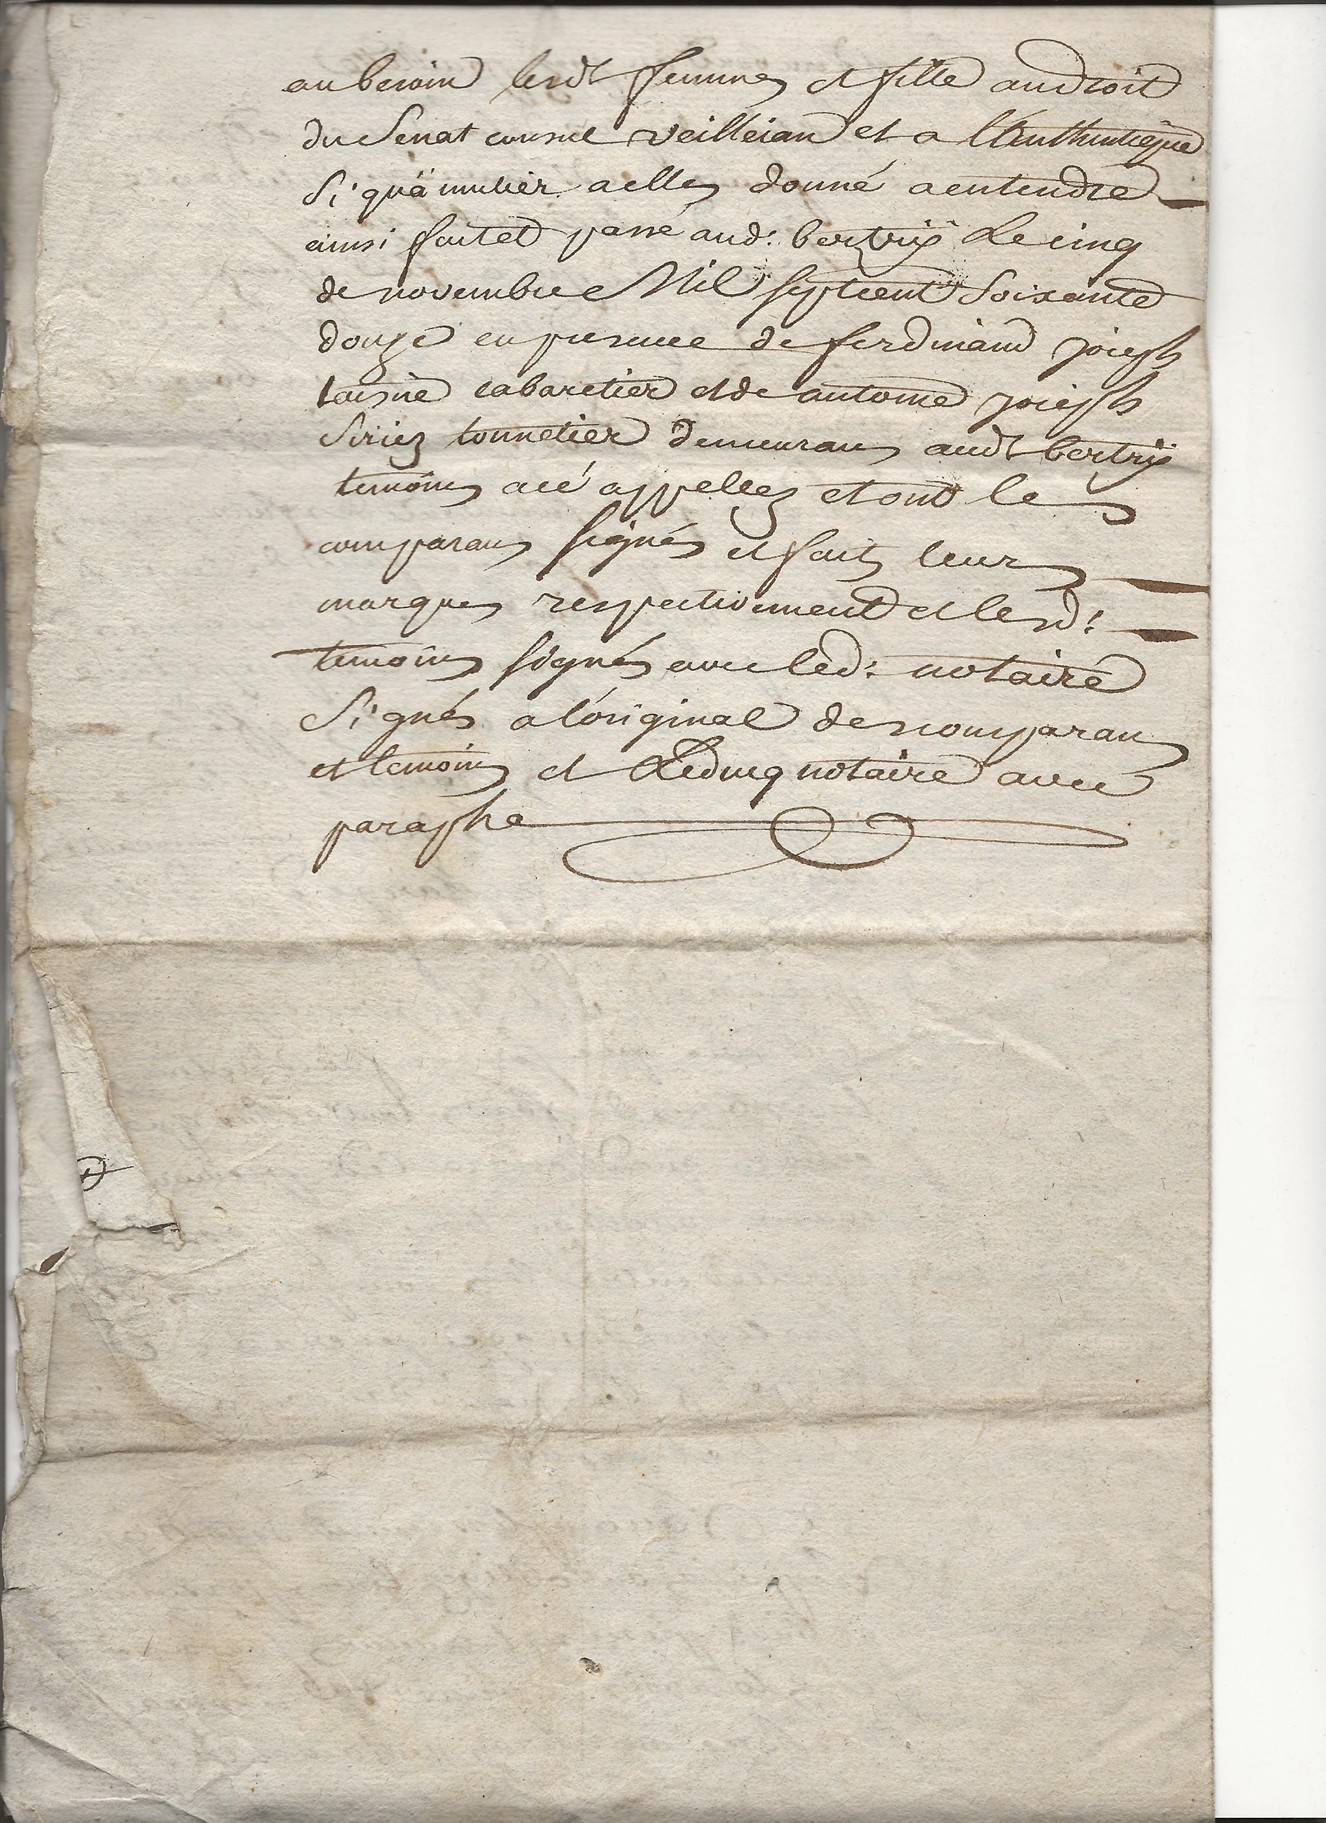 au besoin lesdt femmes et fille au droit
du Senat consul veilleian et a l'Authentique
Si quä mulier a elles donné a entendre
ainsi fait et passé aud: bertrÿ Le cinq
de novembre Mil septcent Soixante
douze en presence de ferdinand joseph
taisne cabaretier et de antoine joseph
Siriez tonnelier demeurans audt bertrÿ
temoins a cé appellez et ont les
comparans signés et faits leurs
marques respectivement et lesd:
temoins signés avec led: notaire
Signés a l'original des comparans
et temoins et Leducq notaire avec
paraphe